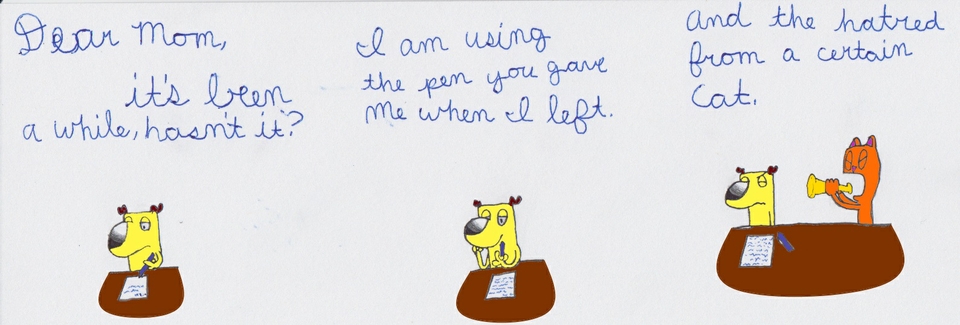 Dear Mom,
it's been
a while, hasn't it?
I am using
the pen you gave
me when I left.
And the hatred
from a certain
Cat.